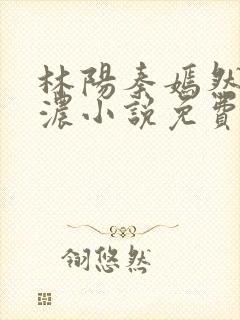 林陽秦嫣然
濃小說免費
翎悠然